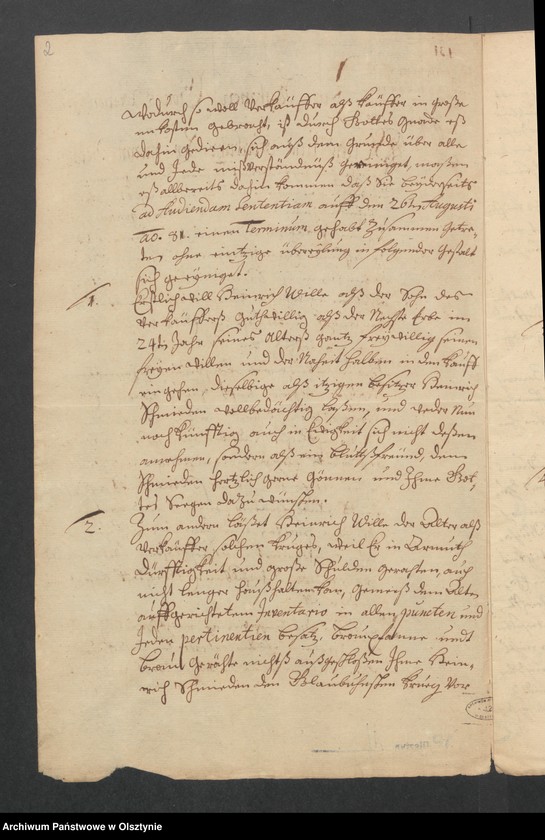 2
131
1
Wodurch so woll Verkäuffer alß Käuffer in große
unkosten gebracht, ist durch Gottes Gnade eß
dahin gediegen, sich auß dem Grunde über alle
und Jede mißverständnüß geeiniget, maßen
eß allbereits dahin kommen daß Sie beyderseits
ad Audiendam Sententiam auff den 26ten Augusti
ao. 81 einen Terminum gehabt Zusammen getre-
ten ohne eintzige übereylung in folgender Gestalt
sich geeyniget.
1. Erstlich will Heinrich Wille alß der Sohn des
Verkäufferß Guthwillig alß der Nechste Erbe im
24ten Jahr seines Alterß gantz freywillig seinen
freyen willen und der Naheit halben in den Kauff
eingehen, dieselbige alß itzigen besitzer Heinrich
Schmieden wollbedächtig laßen, und weder Nun
noch künfftig auch in Ewigkeit sich nicht deßen
annehmen, sondern alß ein bluthsfreund, dem
Schmieden hertzlich gerne Gönnen und Ihme Got-
tes Seegen dazu wünschen.
2. Zum andern läßet Heinrich Wille der Alter alß
Verkäuffer, solchen Kruges, weil Er in Armuth
dürfftigkeit und große Schulden gerathen, auch
nicht lenger haußhalten kan, Gemeeß dem Alten
auffgerichtetem Inventario in allen puncten und
Jeder pertinentien besatz, braupfanne undt
brau Gerähte nichtß außgeschloßen Ihme Hein-
rich Schmieden den krueg vor
Archiwum Państwowe w Olsztynie